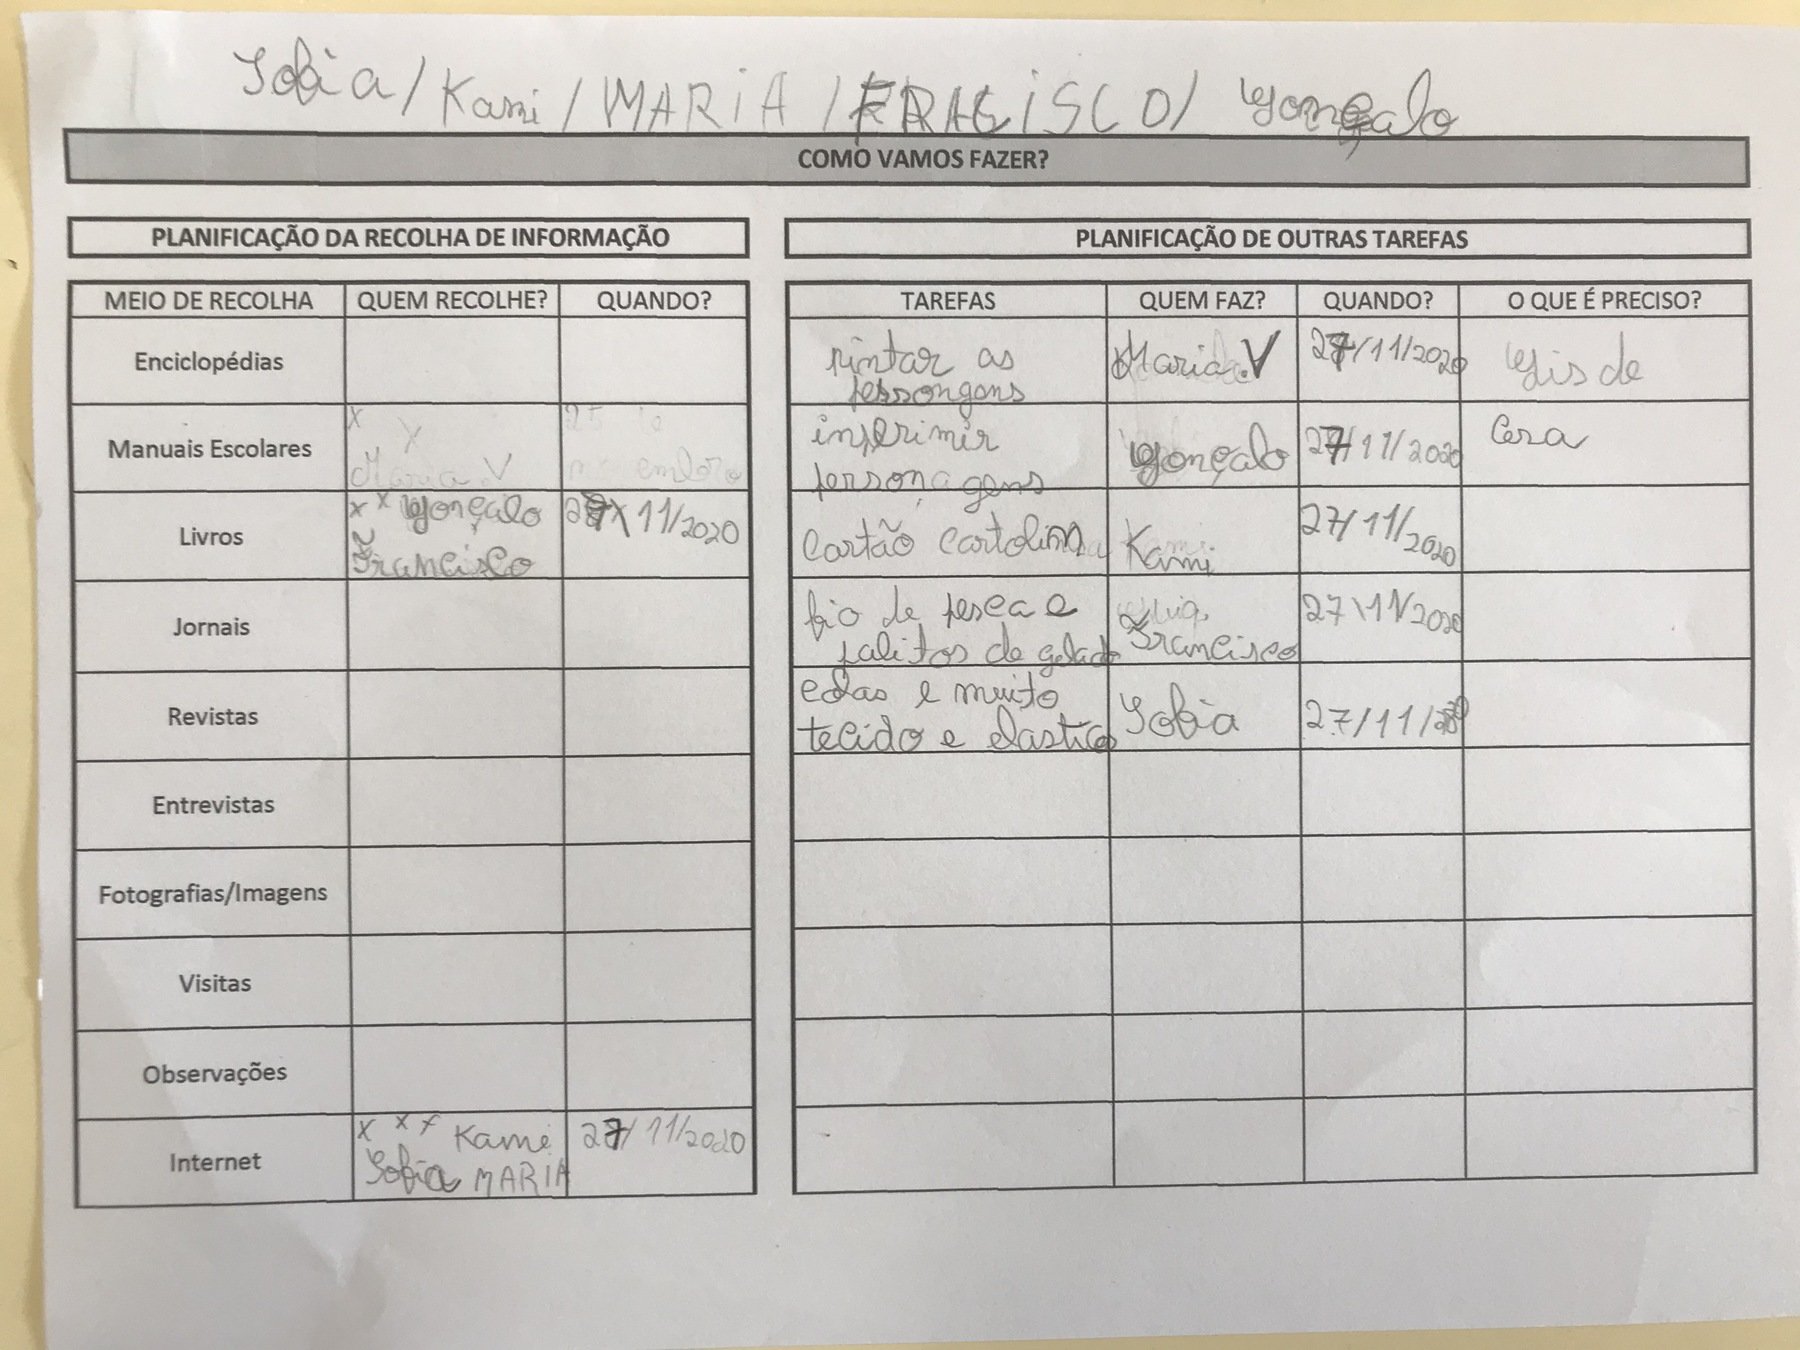 Sofia / Kami / MARIA / FRACISCO / Gonçalo
COMO VAMOS FAZER?
PLANIFICAÇÃO DA RECOLHA DE INFORMAÇÃO
MEIO DE RECOLHA QUEM RECOLHE? QUANDO?
Enciclopédias
Manuais Escolares
Maria V
Livros
x x Gonçalo
Francisco
27\11/2020
Jornais
Revistas
Entrevistas
Fotografias/Imagens
Visitas
Observações
Internet
x x x Kami
Sofia MARIA
27/11/2020
PLANIFICAÇÃO DE OUTRAS TAREFAS
TAREFAS QUEM FAZ? QUANDO? O QUE É PRECISO?
pintar as
pessongens
Maria.V
27/11/2020
Gis de
imprimir
personagens
Gonçalo
27/11/2020
Cera
cartão cartolina
Kami
27/11/2020
fio de pesca e
palitos de gelado
Francisco
27\11/2020
e muito
tecido e elasticos
Sofia
27/11/2020